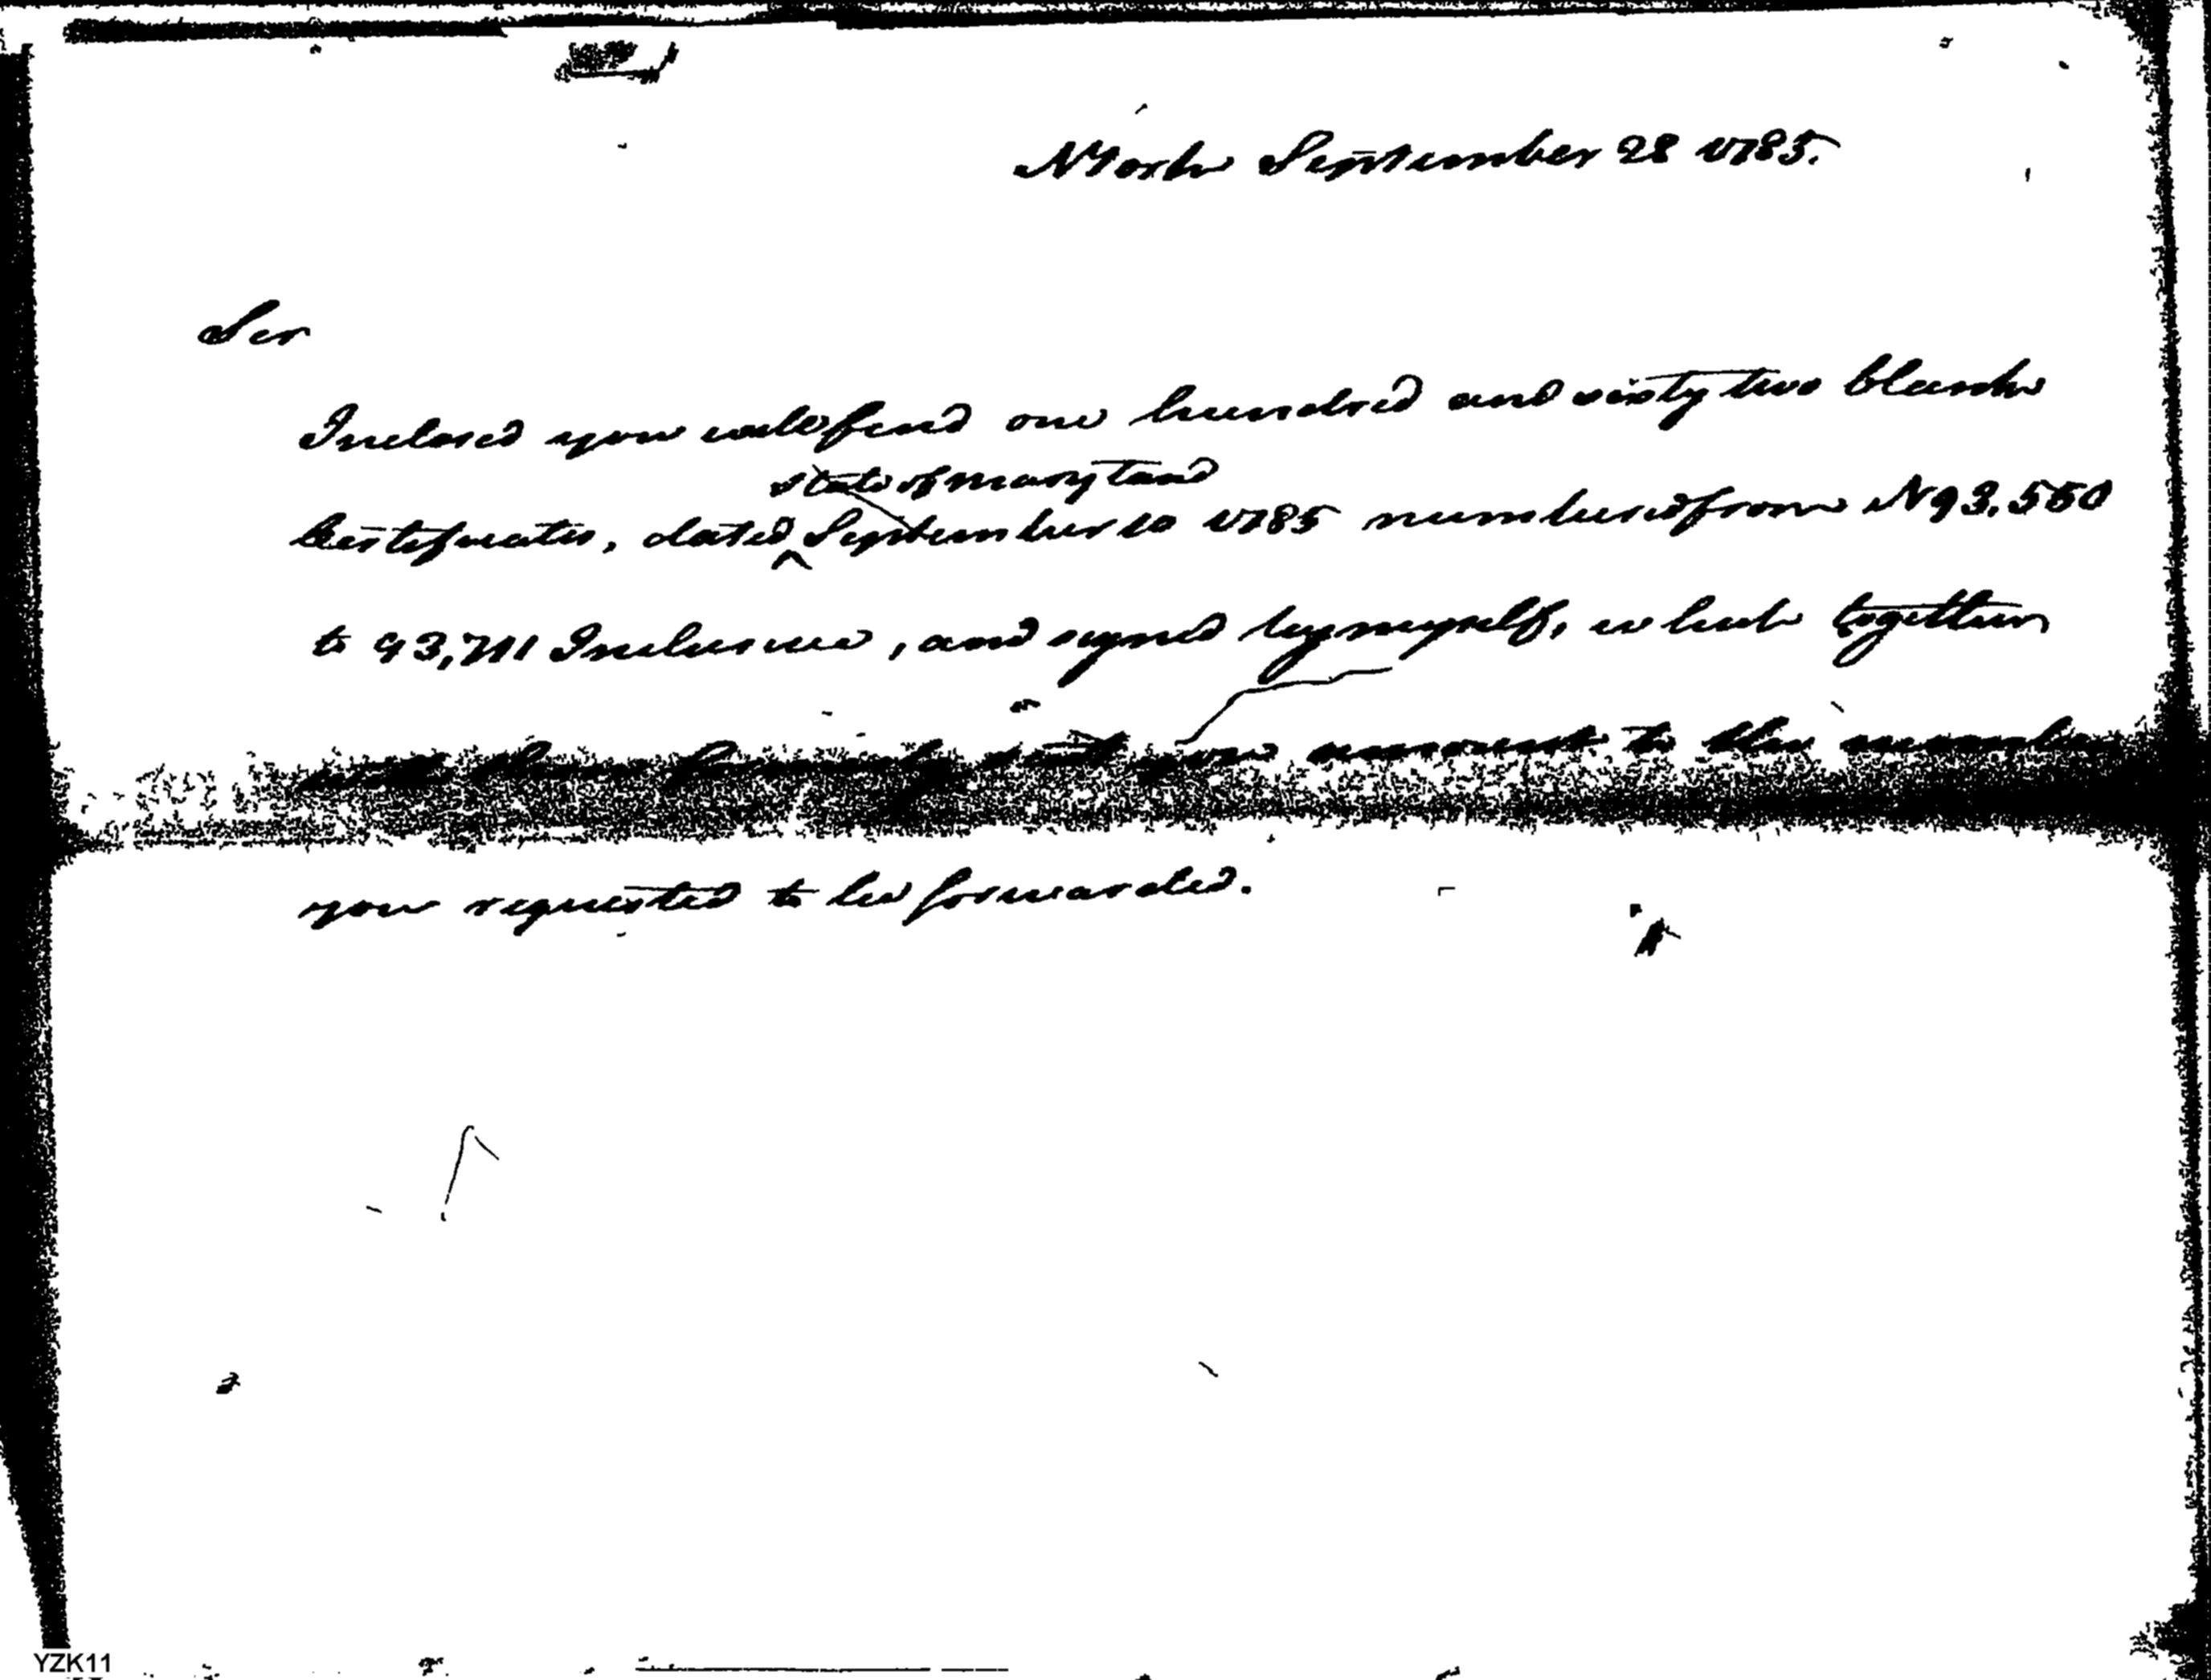 NYork September 28 1785.
Sir
Inclosed you will find one hundred and sixty two blank
state of maryland
Certificates, dated ^ September 10 1785 numbered from N 93.550
to 93,711 Inclusive, and signed by myself, which together
with those formerly sent you amount to the number
you requested to be forwarded.
YZK11